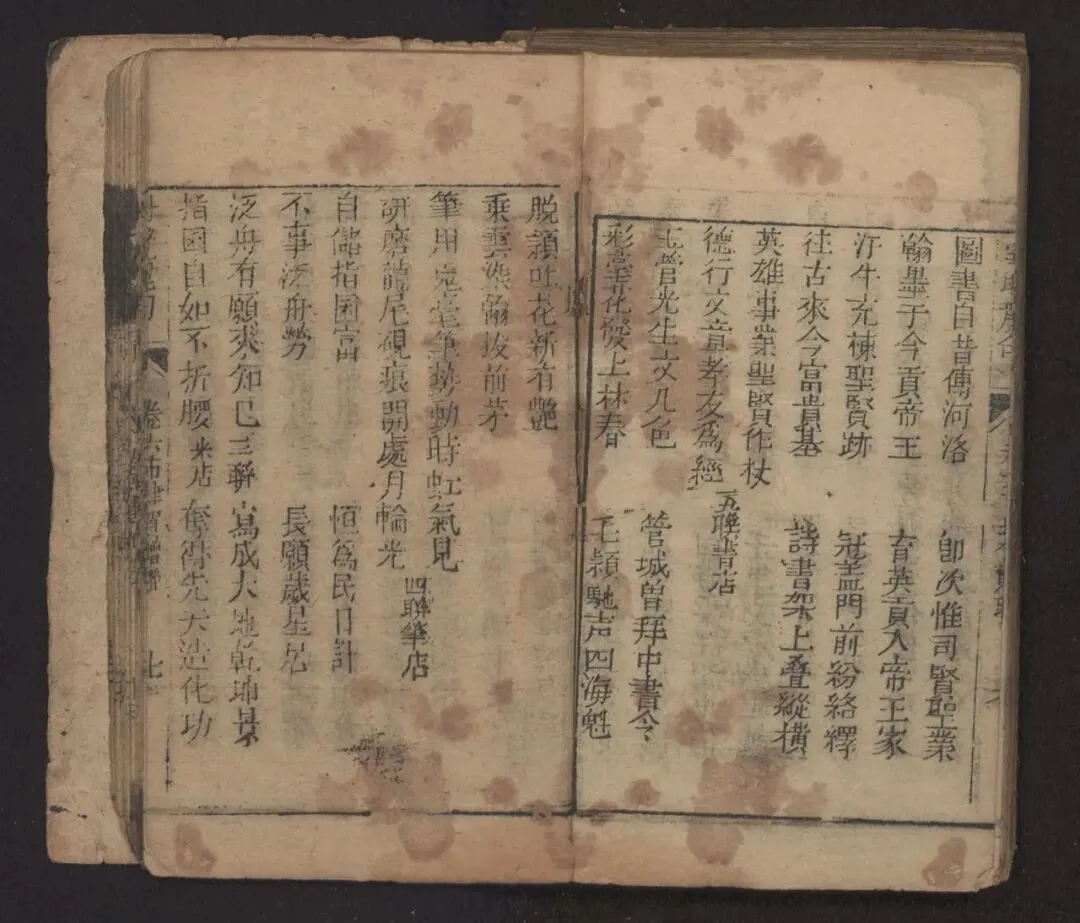 圖書自昔傳河洛 即次惟司賢聖業
翰墨于今貢帝王 育英貢入帝王家
汗牛充棟聖賢跡 冠盖門前紛絡繹
往古來今富貴基 詩書架上叠縱橫
英雄事業聖賢作杖
德行文章孝友爲經 五聯書店
玉管光生文几色 管城曾拜中書令
彩毫花發上林春 毛頴馳声四海魁
脫頴吐花新有艷
乘雲染翰拔前茅
筆用兎毫筆勢動時虹氣見
研磨龍尾硯痕開處月輪光 四聯筆店
自儲指囷富 恒爲民日計
不事泛舟勞 長願歲星居
泛舟有願來知己 三聯 寫成大地乾坤景
指囷自如不折腰 米店 奪得先天造化功
卷六 七